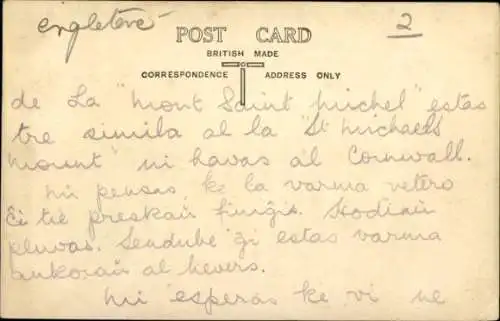 engleterre 2
POST CARD
BRITISH MADE
CORRESPONDENCE ADDRESS ONLY
de La "Mont Saint Michel" estas
tre simila al la "St Michaels
Mount" ni havas al Cornwall.
Mi pensas ke la varma vetero
ĉi tie preskaŭ finiĝis. Hodiaŭ
pluvas. Sendube ĝi estas varma
ankoraŭ al
Mi esperas ke vi ne